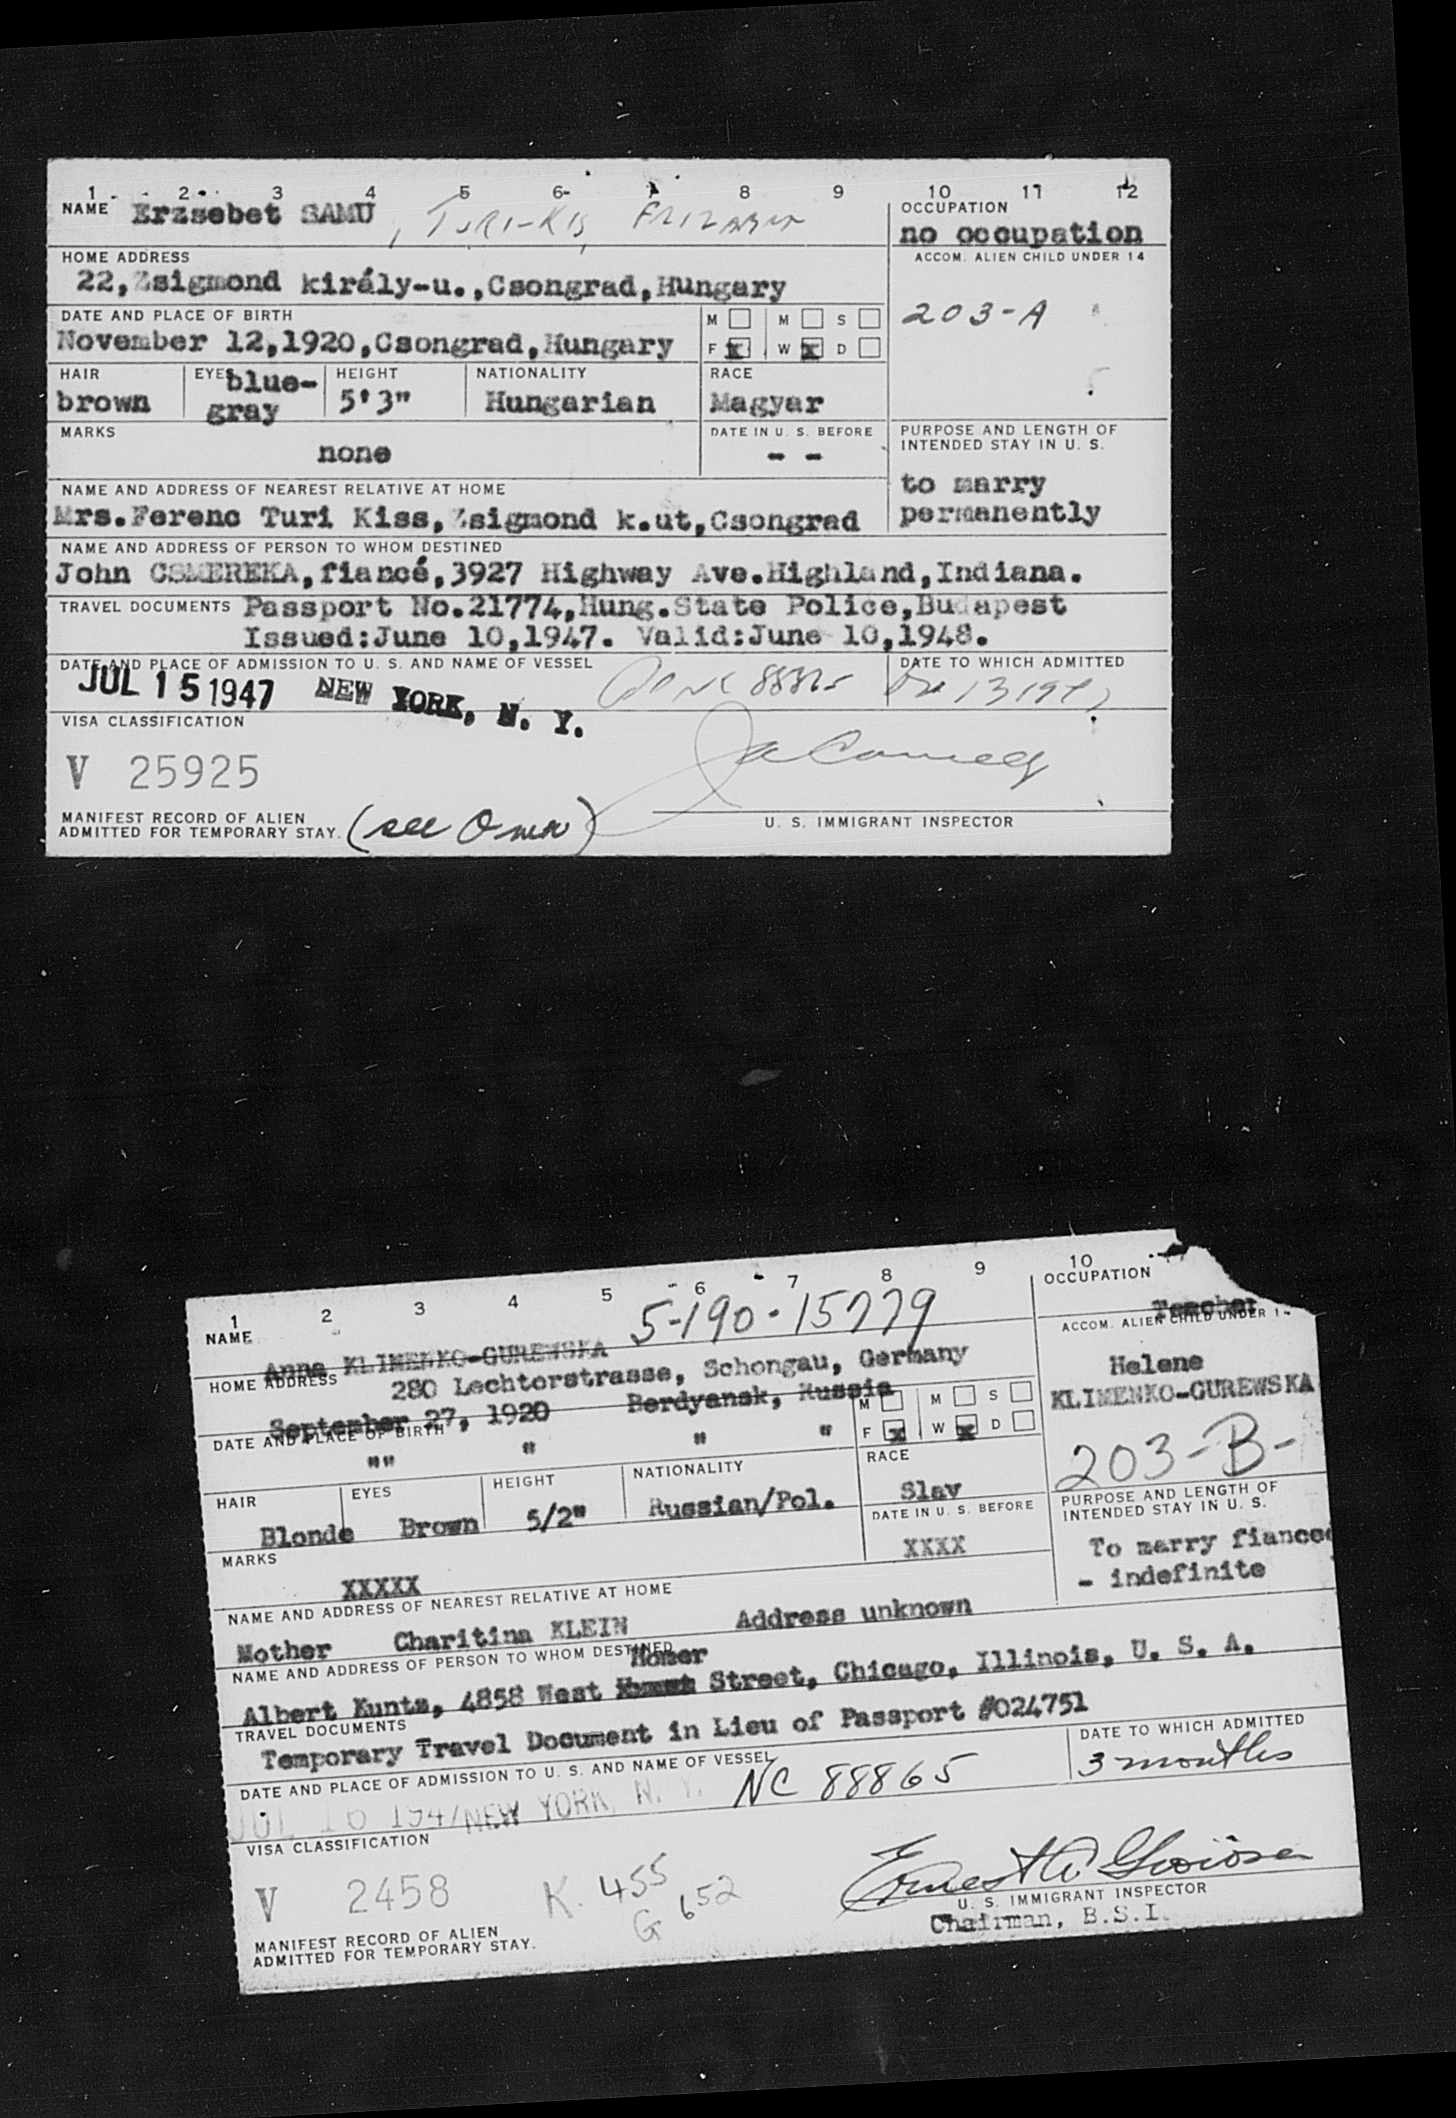 1 2 3 4 5 6 7 8 9 10 11 12
NAME Erzsebet SAMU, TURI-KIS,
OCCUPATION
no occupation
HOME ADDRESS
22,Zsigmond király-u.,Csongrad,Hungary
ACCOM. ALIEN CHILD UNDER 14
203-A
DATE AND PLACE OF BIRTH
November 12,1920,Csongrad,Hungary
M M S
F X W X D
HAIR EYES HEIGHT NATIONALITY RACE
brown blue-gray 5'3" Hungarian Magyar
MARKS
none
DATE IN U. S. BEFORE
- -
PURPOSE AND LENGTH OF
INTENDED STAY IN U. S.
to marry
permanently
NAME AND ADDRESS OF NEAREST RELATIVE AT HOME
Mrs.Ferenc Turi Kiss,Zsigmond k.ut,Csongrad
NAME AND ADDRESS OF PERSON TO WHOM DESTINED
John CSMEREKA,fiancé,3927 Highway Ave.Highland,Indiana.
TRAVEL DOCUMENTS Passport No.21774,Hung.State Police,Budapest
Issued:June 10,1947. Valid:June 10,1948.
DATE AND PLACE OF ADMISSION TO U. S. AND NAME OF VESSEL
JUL 15 1947 NEW YORK, N. Y. NC 88865
DATE TO WHICH ADMITTED
VISA CLASSIFICATION
V 25925
MANIFEST RECORD OF ALIEN
ADMITTED FOR TEMPORARY STAY.
(see
U. S. IMMIGRANT INSPECTOR
1 2 3 4 5 6 7 8 9 10
NAME
Anna KLIMENKO-GUREWSKA 5-190-15779
OCCUPATION
Teacher
HOME ADDRESS
280 Lechtorstrasse, Schongau, Germany
ACCOM. ALIEN CHILD UNDER 1
Helene
KLIMENKO-GUREWSKA
203-B-
September 27, 1920 Berdyansk, Russia
DATE AND PLACE OF BIRTH
"" " " "
M M S
F X W X D
HAIR EYES HEIGHT NATIONALITY RACE
Blonde Brown 5/2" Russian/Pol. Slav
MARKS
XXXXX
DATE IN U. S. BEFORE
XXXX
PURPOSE AND LENGTH OF
INTENDED STAY IN U. S.
To marry fiancee
- indefinite
NAME AND ADDRESS OF NEAREST RELATIVE AT HOME
Mother Charitina KLEIN Address unknown
NAME AND ADDRESS OF PERSON TO WHOM DESTINED
Homer
Albert Kunts, 4858 West Street, Chicago, Illinois, U. S. A.
TRAVEL DOCUMENTS
Temporary Travel Document in Lieu of Passport #024751
DATE AND PLACE OF ADMISSION TO U. S. AND NAME OF VESSEL
JUL 16 1947 NEW YORK, N. Y. NC 88865
DATE TO WHICH ADMITTED
3 months
VISA CLASSIFICATION
V 2458 K. 455
G 652
U. S. IMMIGRANT INSPECTOR
Chairman, B.S.I.
MANIFEST RECORD OF ALIEN
ADMITTED FOR TEMPORARY STAY.